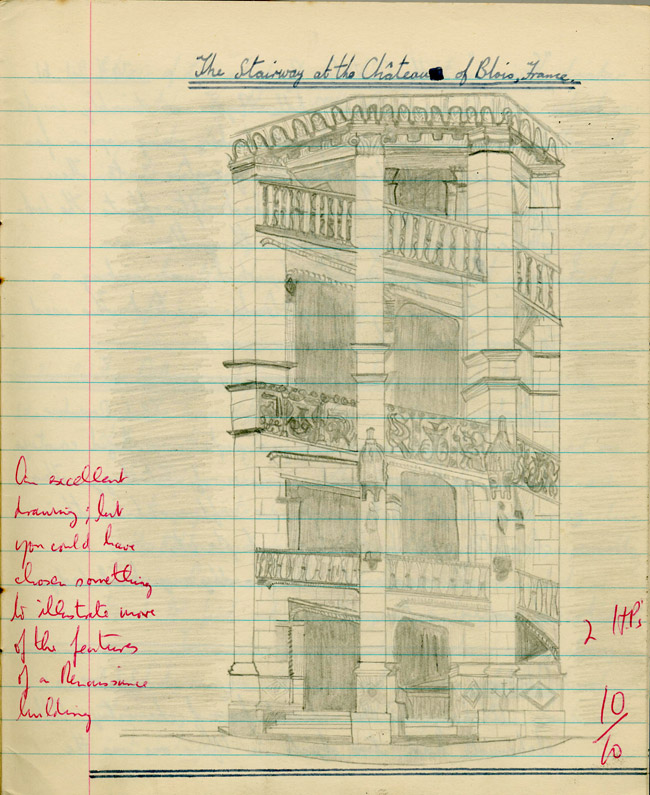 The Stairway at the Château of Blois, France.
An excellent
drawing; but
you could have
chosen something
to illustrate more
of the features
of a Renaissance
building
2 H.P.'s
10/10